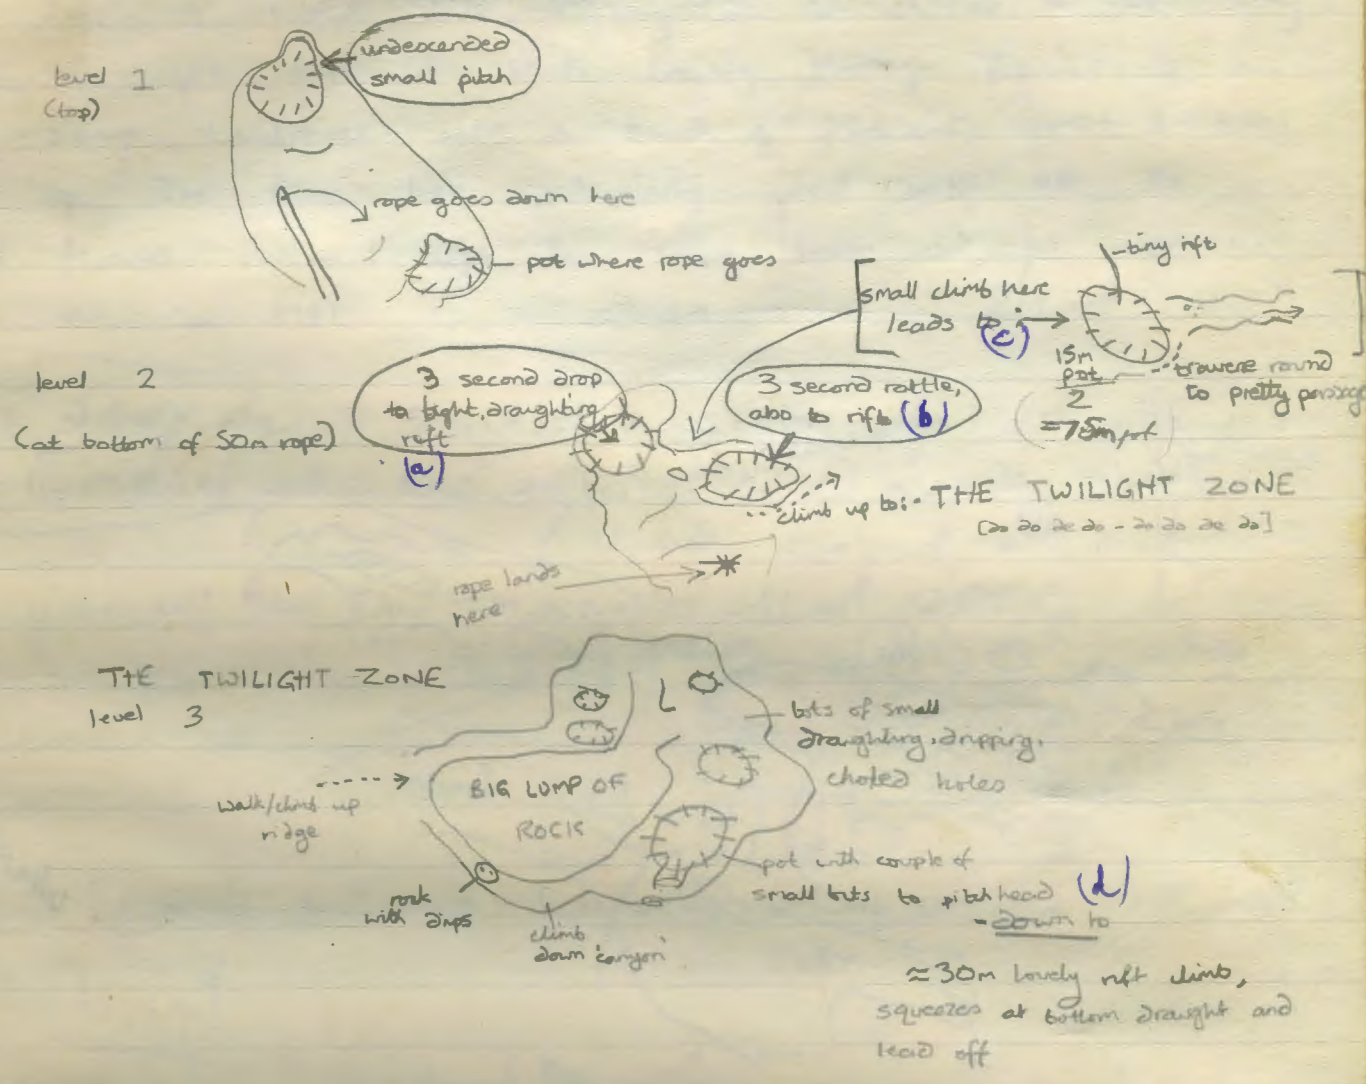 undescended
small pitch
level 1
(top)
rope goes down here
pot where rope goes
tiny rift
small climb here
leads to :
(c)
15m
pot
2
=75m pot
traverse round
to pretty passage
level 2
(at bottom of 50m rope)
3 second drop
to tight, draughting
rift
(a)
3 second rattle,
also to rift (b)
climb up to:- THE TWILIGHT ZONE
[do do de do - do do de do]
rope lands
here
THE TWILIGHT ZONE
level 3
lots of small
draughting, dripping,
choked holes
walk/climb up
ridge
BIG LUMP OF
ROCK
rock
with dips
climb
down 'canyon'
pot with couple of
small bits to pitch head (d)
- down to
≈30m lovely rift climb,
squeezes at bottom draught and
lead off